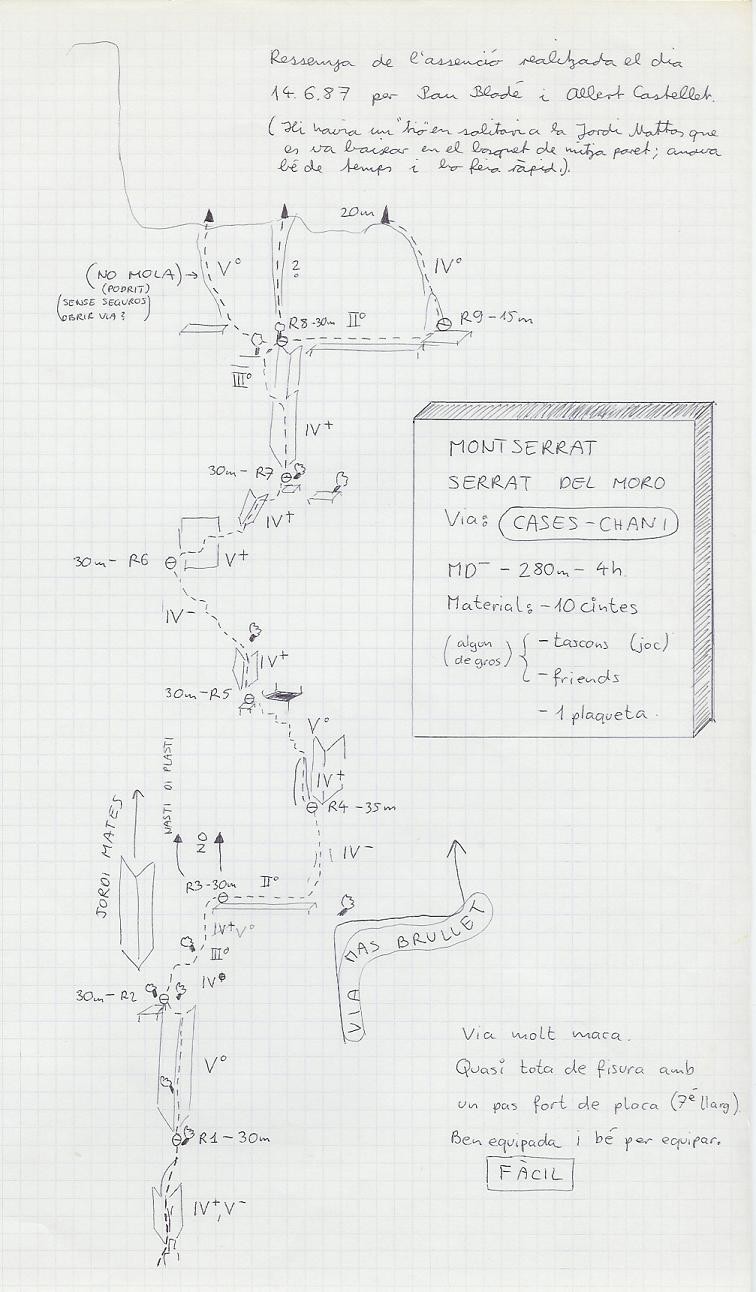 Ressenya de l'assenció realitzada el dia
14.6.87 per Pau Bladé i Albert Castellet.
(Hi havia un "tió" en solitari a la Jordi Mattos que
es va baixar en el bosquet de mitja paret; anava
bé de temps i ho feia ràpid).
20m
(NO MOLA)
(PODRIT)
(SENSE SEGUROS)
OBRIR VIA?
V°
?
IV°
R8-30m II°
R9-15m
III°
IV+
30m-R7
IV+
30m-R6
V+
IV-
IV+
30m-R5
V°
IV+
R4-35m
IV-
MONTSERRAT
SERRAT DEL MORO
Via: CASES-CHANI
MD- - 280m - 4h
Material: - 10 cintes
(algun de gros) - tascons (joc)
- friends
- 1 plaqueta
NASTI DI PLASTI
JORDI MATES
NO
R3-30m
II°
IV+ V°
III°
IV°
VIA MAS BRULLET
30m-R2
V°
R1-30m
IV+, V-
Via molt maca.
Quasi tota de fisura amb
un pas fort de placa (7é llarg)
Ben equipada i bé per equipar.
FÀCIL